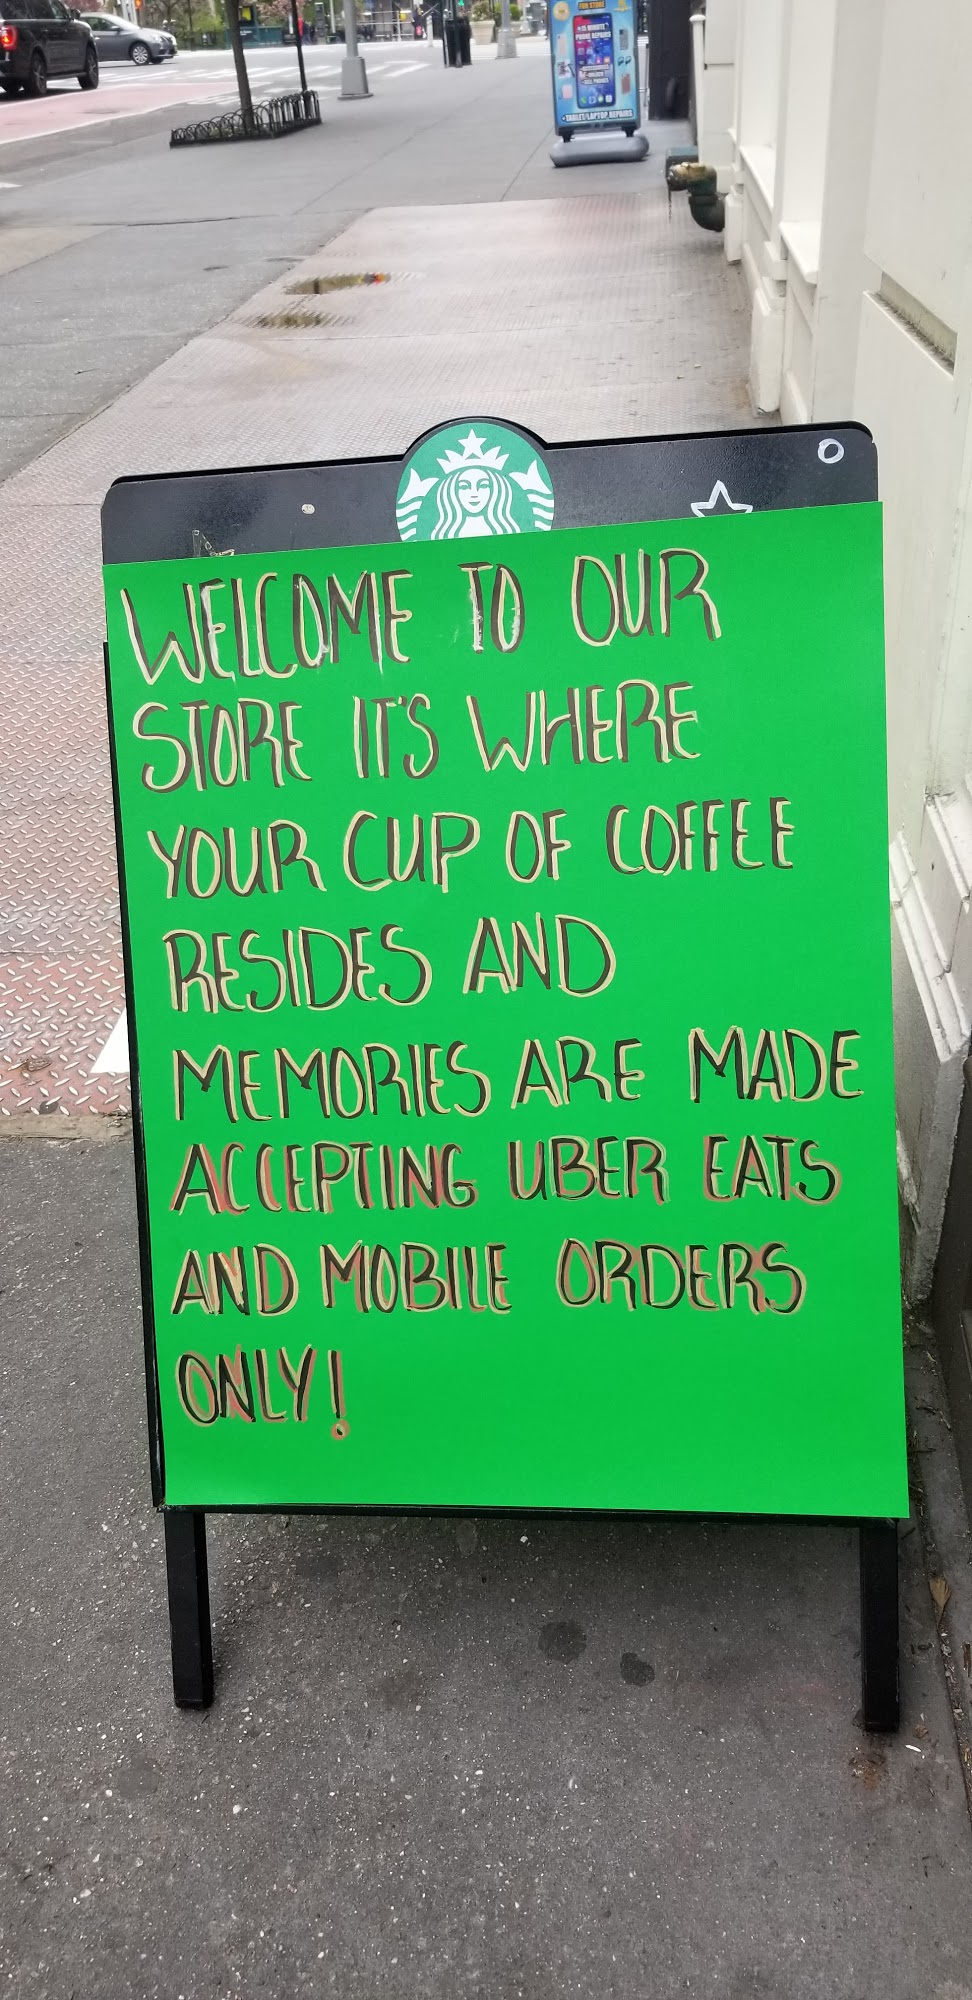 FUN STORE
PHONE REPAIRS
+TABLET/LAPTOP REPAIRS
WELCOME TO OUR
STORE IT'S WHERE
YOUR CUP OF COFFEE
RESIDES AND
MEMORIES ARE MADE
ACCEPTING UBER EATS
AND MOBILE ORDERS
ONLY!